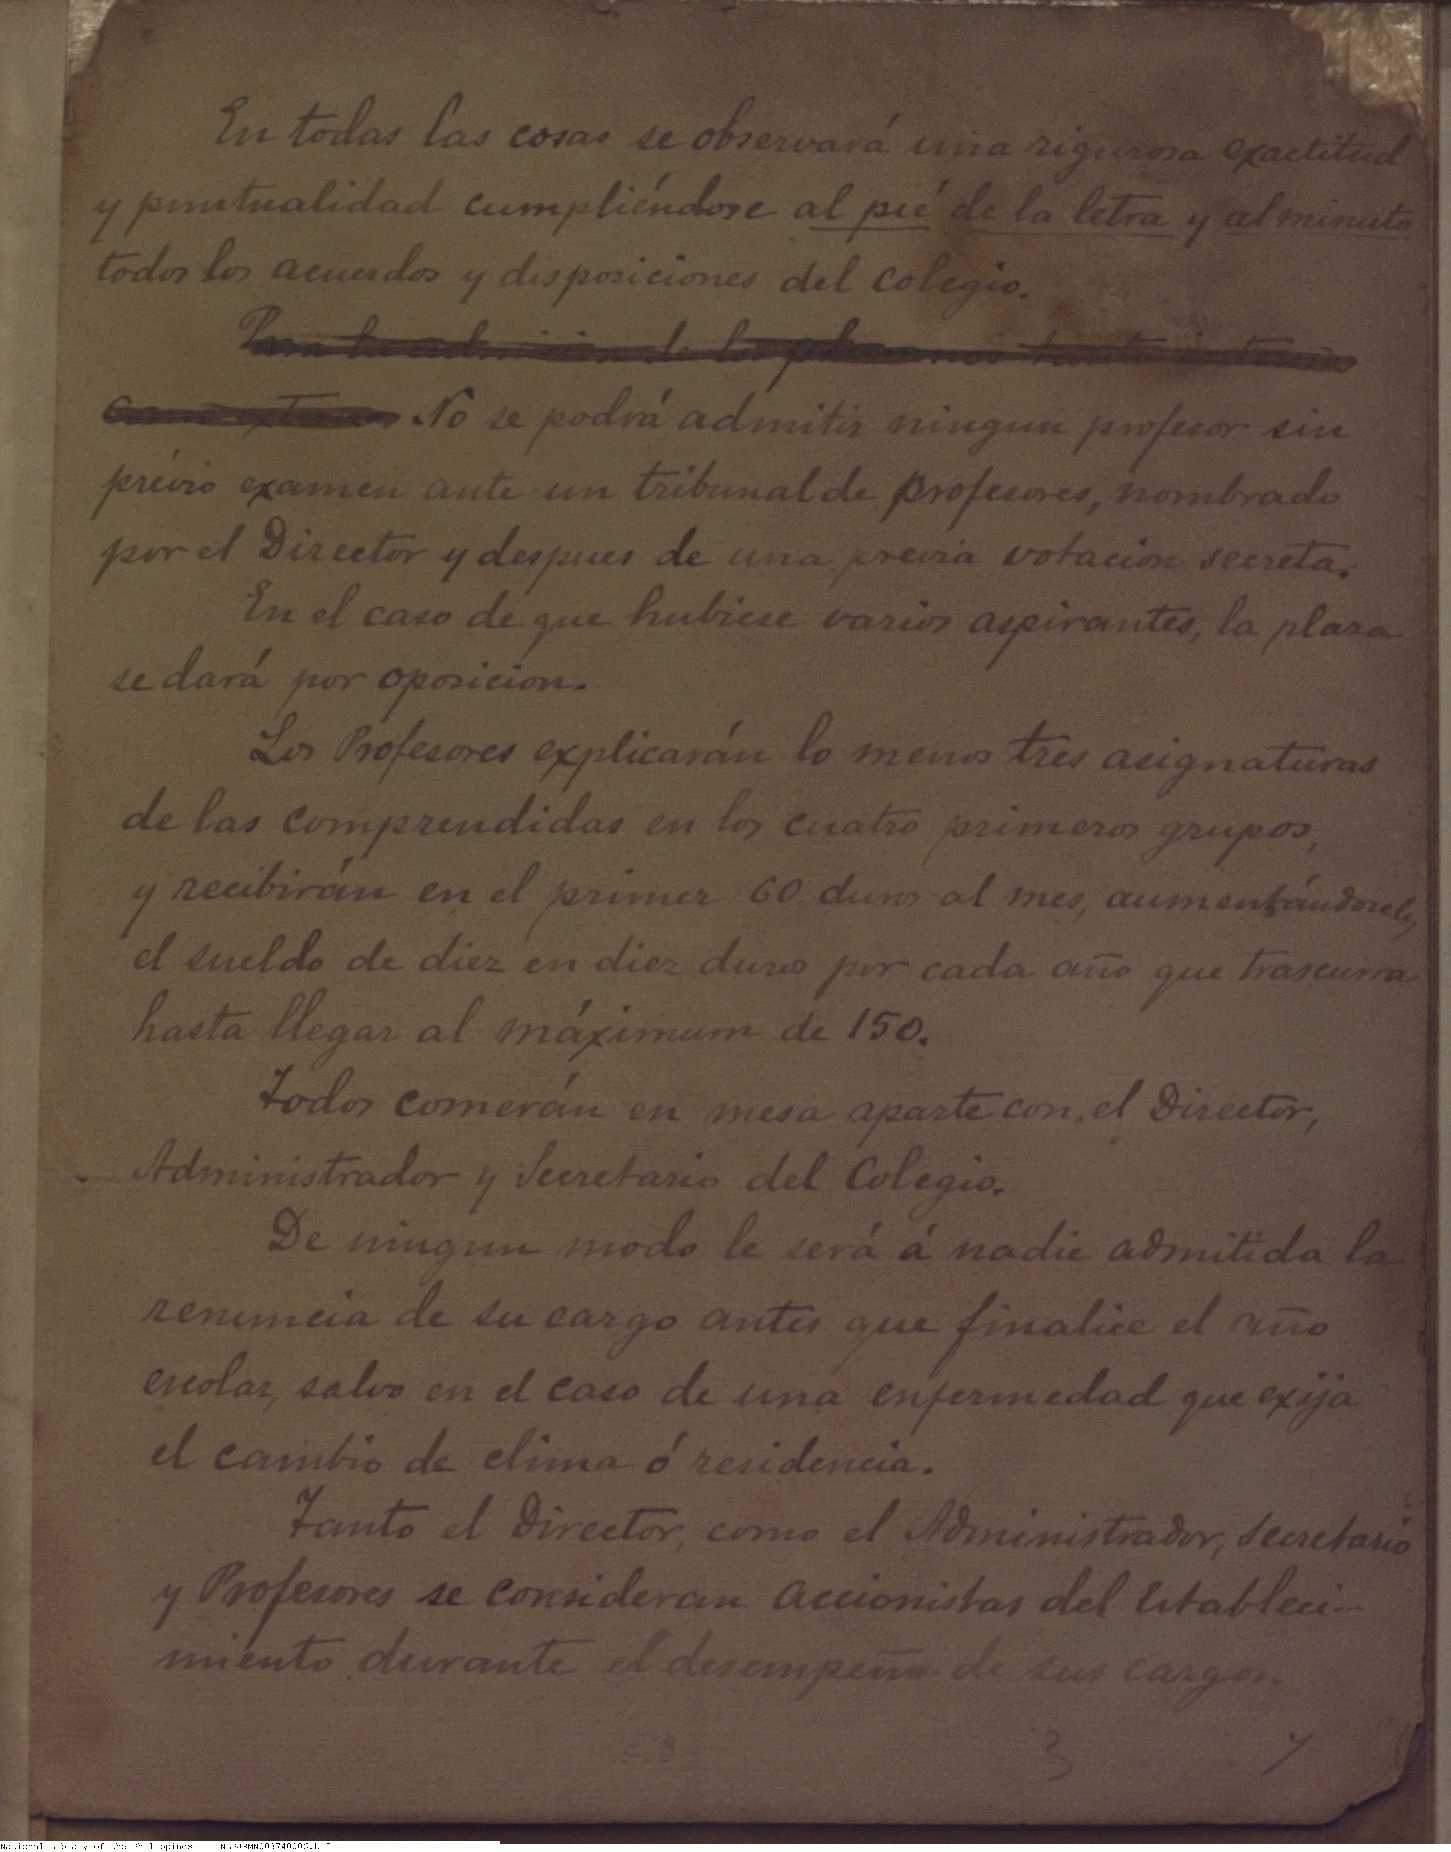 En todas las cosas se observará una rigurosa exactitud
y puntualidad cumpliéndose al pié de la letra y al minuto
todos los acuerdos y disposiciones del colegio.
Para la admision de los
No se podrá admitir ningun profesor sin
prévio examen ante un tribunal de profesores, nombrado
por el Director y despues de una previa votacion secreta.
En el caso de que hubiese varios aspirantes, la plaza
se dará por oposicion.
Los Profesores explicarán lo menos tres asignaturas
de las comprendidas en los cuatro primeros grupos,
y recibirán en el primer 60 duros al mes, aumentándoseles,
el sueldo de diez en diez duros por cada año que trascurra
hasta llegar al máximum de 150.
Todos comerán en mesa aparte con el Director,
Administrador y Secretario del Colegio.
De ningun modo le será á nadie admitida la
renuncia de su cargo antes que finalice el año
escolar, salvo en el caso de una enfermedad que exija
el cambio de clima ó residencia.
Tanto el Director, como el Administrador, Secretario
y Profesores se consideran accionistas del Estableci-
miento durante el desempeño de sus cargos.
3 7
National Library of the Philippines